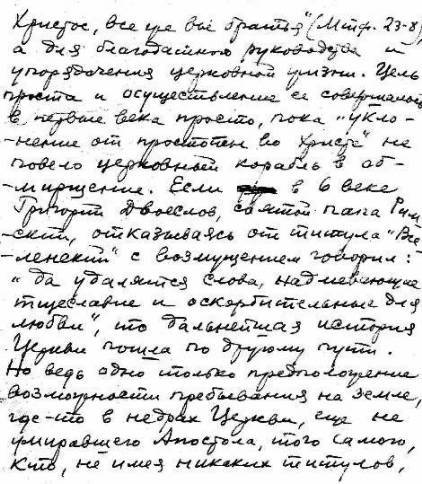 Христос, все же вы братья" (Мтф. 23-8)
а для благодатного руководства и
упорядочения церковной жизни. Цель
проста и осуществление ее совершалось
в первые века просто, пока "укло-
-нение от простоты во Христе" не
повело церковный корабль в об-
-мирщение. Если в 6 веке
Григорий Двоеслов, святой папа Рим
ский, отказываясь от титула "Все
-ленский" с возмущением говорил:
"да удалятся слова, надмевающие
тщеславие и оскорбительные для
любви", то дальнейшая история
Церкви пошла по другому пути.
Но ведь одно только предположение
возможности пребывания на земле,
где-то в недрах Церкви, еще не
умиравшего Апостола, того самого,
кто, не имея никаких титулов,